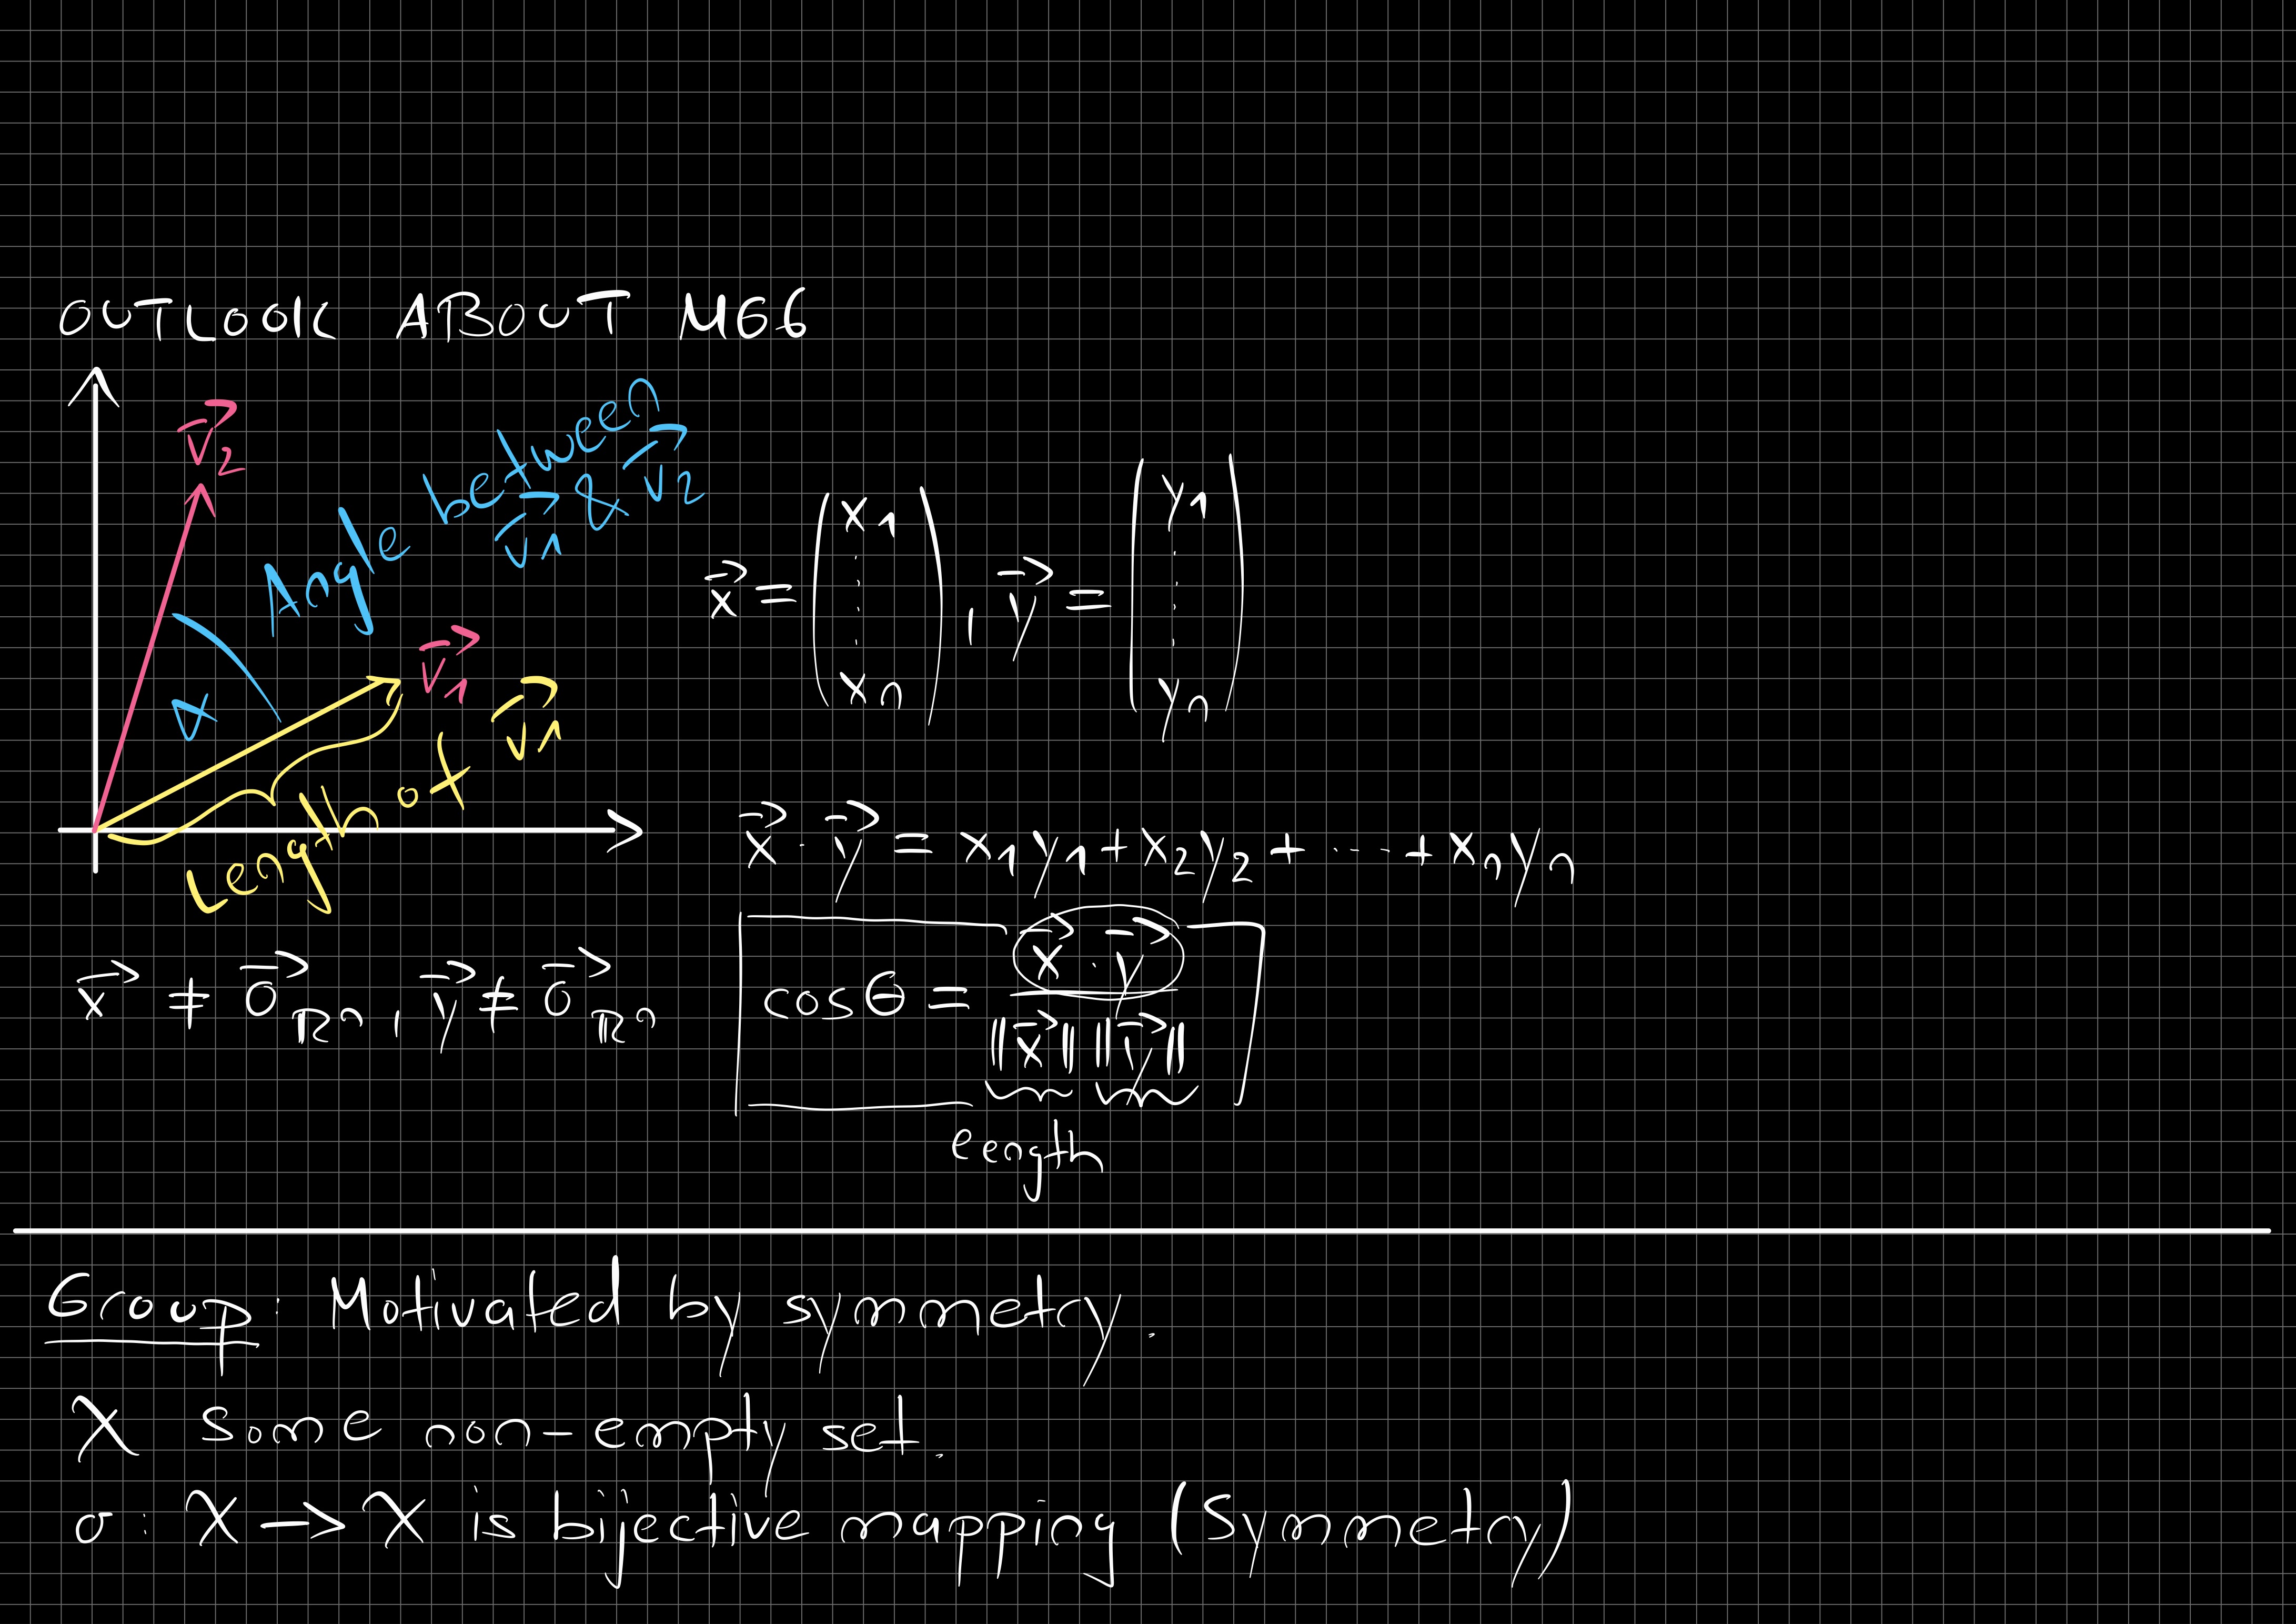 OUTLOOK ABOUT M66
v⃗₂
Angle between
v⃗₁ & v⃗₂
∡
v⃗₁
Length of v⃗₁
x⃗ = (x₁ ⋮ xₙ), y⃗ = (y₁ ⋮ yₙ)
x⃗ · y⃗ = x₁y₁ + x₂y₂ + ---- + xₙyₙ
x⃗ ≠ 0⃗_ℝⁿ, y⃗ ≠ 0⃗_ℝⁿ
cosθ = (x⃗ · y⃗) / (‖x⃗‖ ‖y⃗‖)
length
Group: Motivated by symmetry.
X some non-empty set.
σ: X → X is bijective mapping (Symmetry)